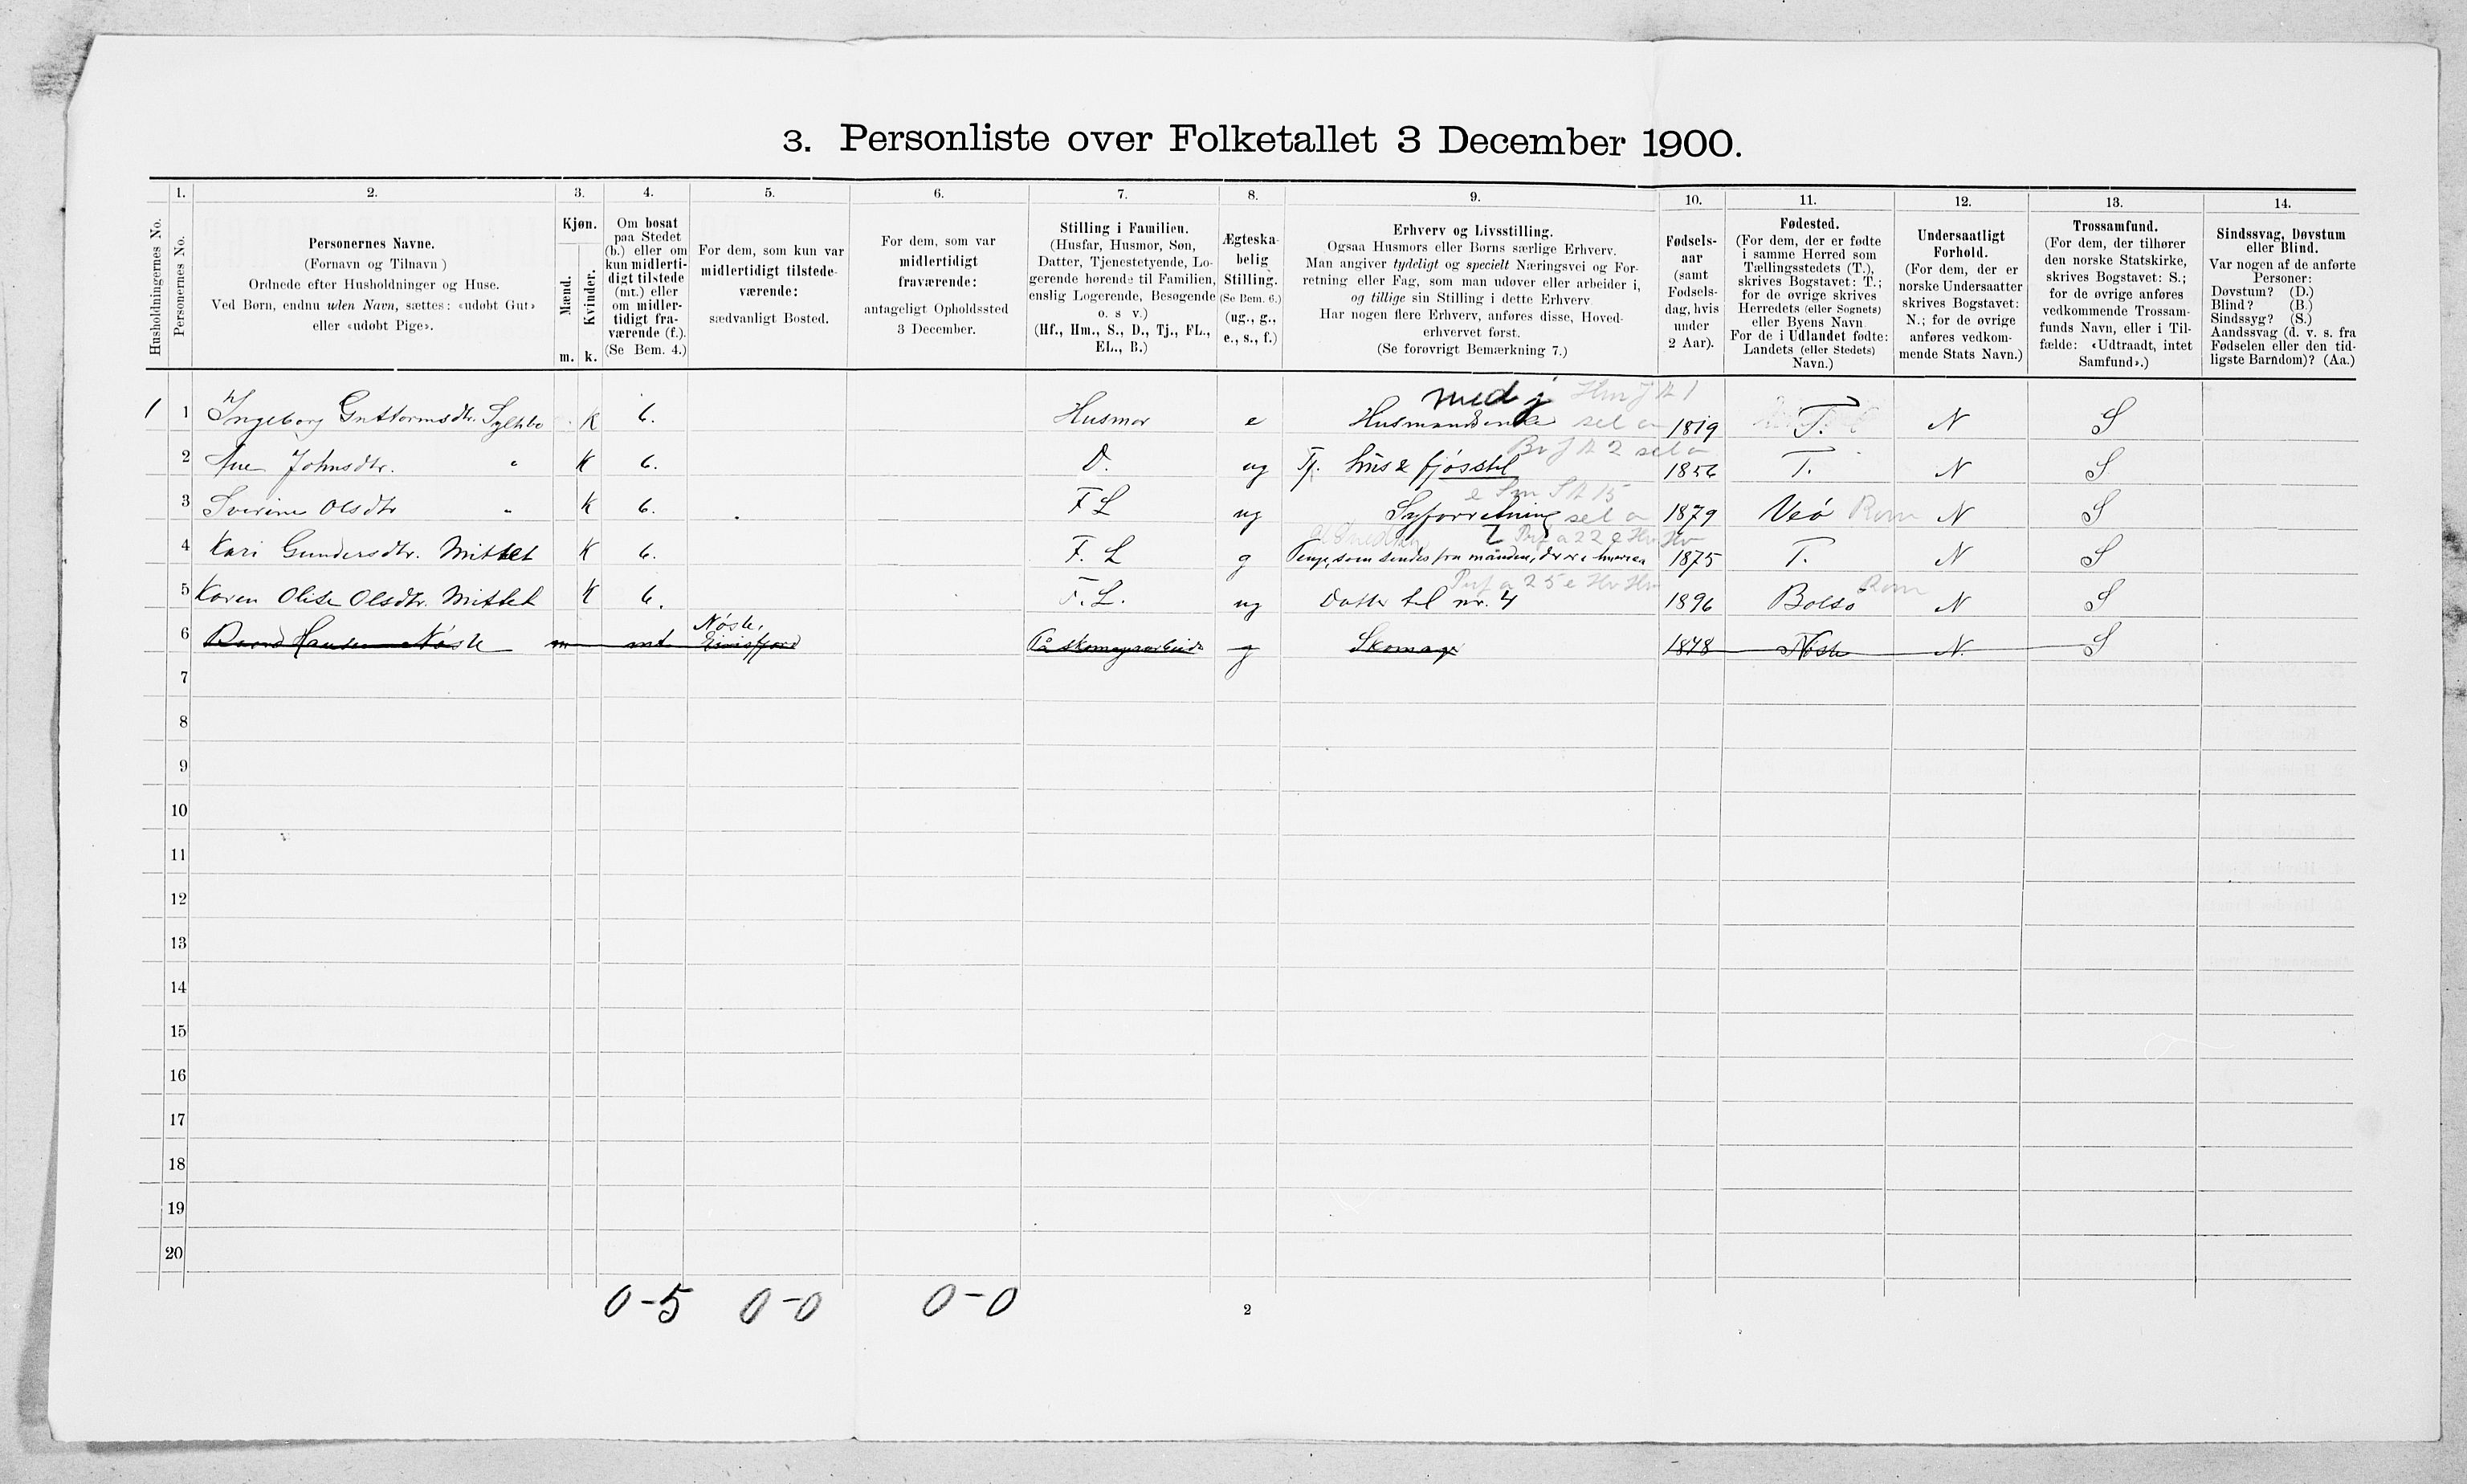 3. Personliste over Folketallet 3 December 1900.
1. 2. 3. 4. 5. 6. 7. 8. 9. 10. 11. 12. 13. 14.
Husholdningernes No.
Personernes No.
Personernes Navne.
(Fornavn og Tilnavn )
Ordnede efter Husholdninger og Huse.
Ved Børn, endnu uden Navn, sættes: «udøbt Gut»
eller «udøbt Pige».
Kjøn.
Mænd.
Kvinder.
m. k.
Om bosat
paa Stedet
(b.) eller om
kun midlerti-
digt tilstede
(mt.) eller
om midler-
tidigt fra-
værende (f.).
(Se Bem. 4.)
For dem, som kun var
midlertidigt tilstede-
værende:
sædvanligt Bosted.
For dem, som var
midlertidigt
fraværende:
antageligt Opholdssted
3 December.
Stilling i Familien.
(Husfar, Husmor, Søn,
Datter, Tjenestetyende, Lo-
gerende hørende til Familien,
enslig Logerende, Besøgende
o. s v.)
(Hf., Hm., S., D., Tj., FL.,
EL., B.)
Ægteska-
belig
Stilling.
(Se Bem. 6.)
(ug., g.,
e., s., f.)
Erhverv og Livsstilling.
Ogsaa Husmors eller Børns særlige Erhverv.
Man angiver tydeligt og specielt Næringsvei og For-
retning eller Fag, som man udøver eller arbeider i,
og tillige sin Stilling i dette Erhverv
Har nogen flere Erhverv, anføres disse, Hoved-
erhvervet først.
(Se forøvrigt Bemærkning 7.)
Fødsels-
aar
(samt
Fødsels-
dag, hvis
under
2 Aar).
Fødested.
(For dem, der er fødte
i samme Herred som
Tællingsstedets (T.),
skrives Bogstavet: T.;
for de øvrige skrives
Herredets (eller Sognets)
eller Byens Navn
For de i Udlandet fødte:
Landets (eller Stedets)
Navn.)
Undersaatligt
Forhold.
(For dem, der er
norske Undersaatter
skrives Bogstavet:
N.; for de øvrige
anføres vedkom-
mende Stats Navn.)
Trossamfund.
(For dem, der tilhører
den norske Statskirke,
skrives Bogstavet: S.;
for de øvrige anføres
vedkommende Trossam-
funds Navn, eller i Til-
fælde: «Udtraadt, intet
Samfund».)
Sindssvag, Døvstum
eller Blind.
Var nogen af de anførte
Personer:
Døvstum? (D.)
Blind? (B.)
Sindssyg? (S.)
Aandssvag (d. v. s. fra
Fødselen eller den tid-
ligste Barndom)? (Aa.)
med j
1 1 Ingeborg Guttormsdtr. Syltebø K b. Husmor e sel a 1819 T. N S
2 Ane Johnsdtr. " K b. D. ug Tj. hus & fjøsstel 1856 T. N S
3 Sverine Olsdtr " K b. F L ug Syforretning sel a 1879 Veø Rom N S
4 Kari Gundersdtr. Mittet K b. F. L g Penge, som sendes fra manden, der er i Amerika 1875 T. N S
5 Karen Olise Olsdtr. Mittet K b. F. L. ug Datter til nr. 4 1896 Bolsø Rom N S
Nøste,
6 Hansen Nøste m mt. Eirisfjord På skomagerarbeide g Skomager 1878 Nøste N. S
7
8
9
10
11
12
13
14
15
16
17
18
19
20
0-5 0-0 0-0
2